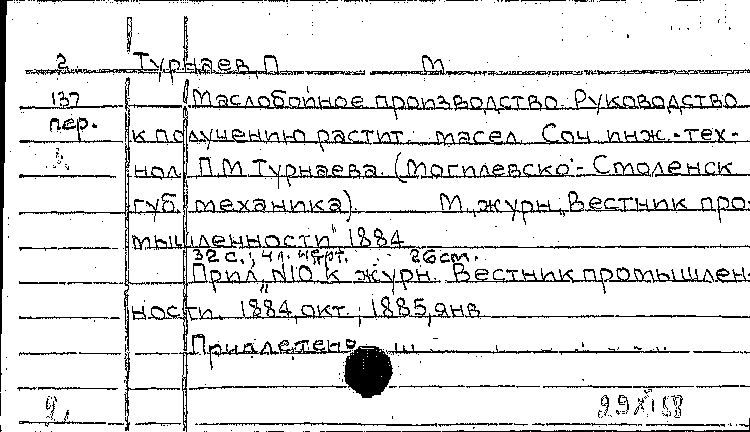 2 Турнаев, П М
137 Маслобойное производство. Руководство
пер. к получению растит. масел. Соч. инж.-тех-
нол. П.М. Турнаева. (Могилевско-Смоленск
губ. механика). М., журн. „Вестник про-
мышленности" 1884
32 с.; 4 л. черт. 26 см.
Прил. „N10 к журн. Вестник промышлен-
ности. 1884, окт.; 1885, янв
Приплетено
29 XI 58